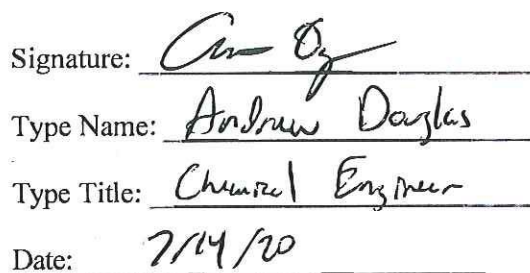 Signature:
Type Name: Andrew Douglas
Type Title: Chemical Engineer
Date: 7/14/20